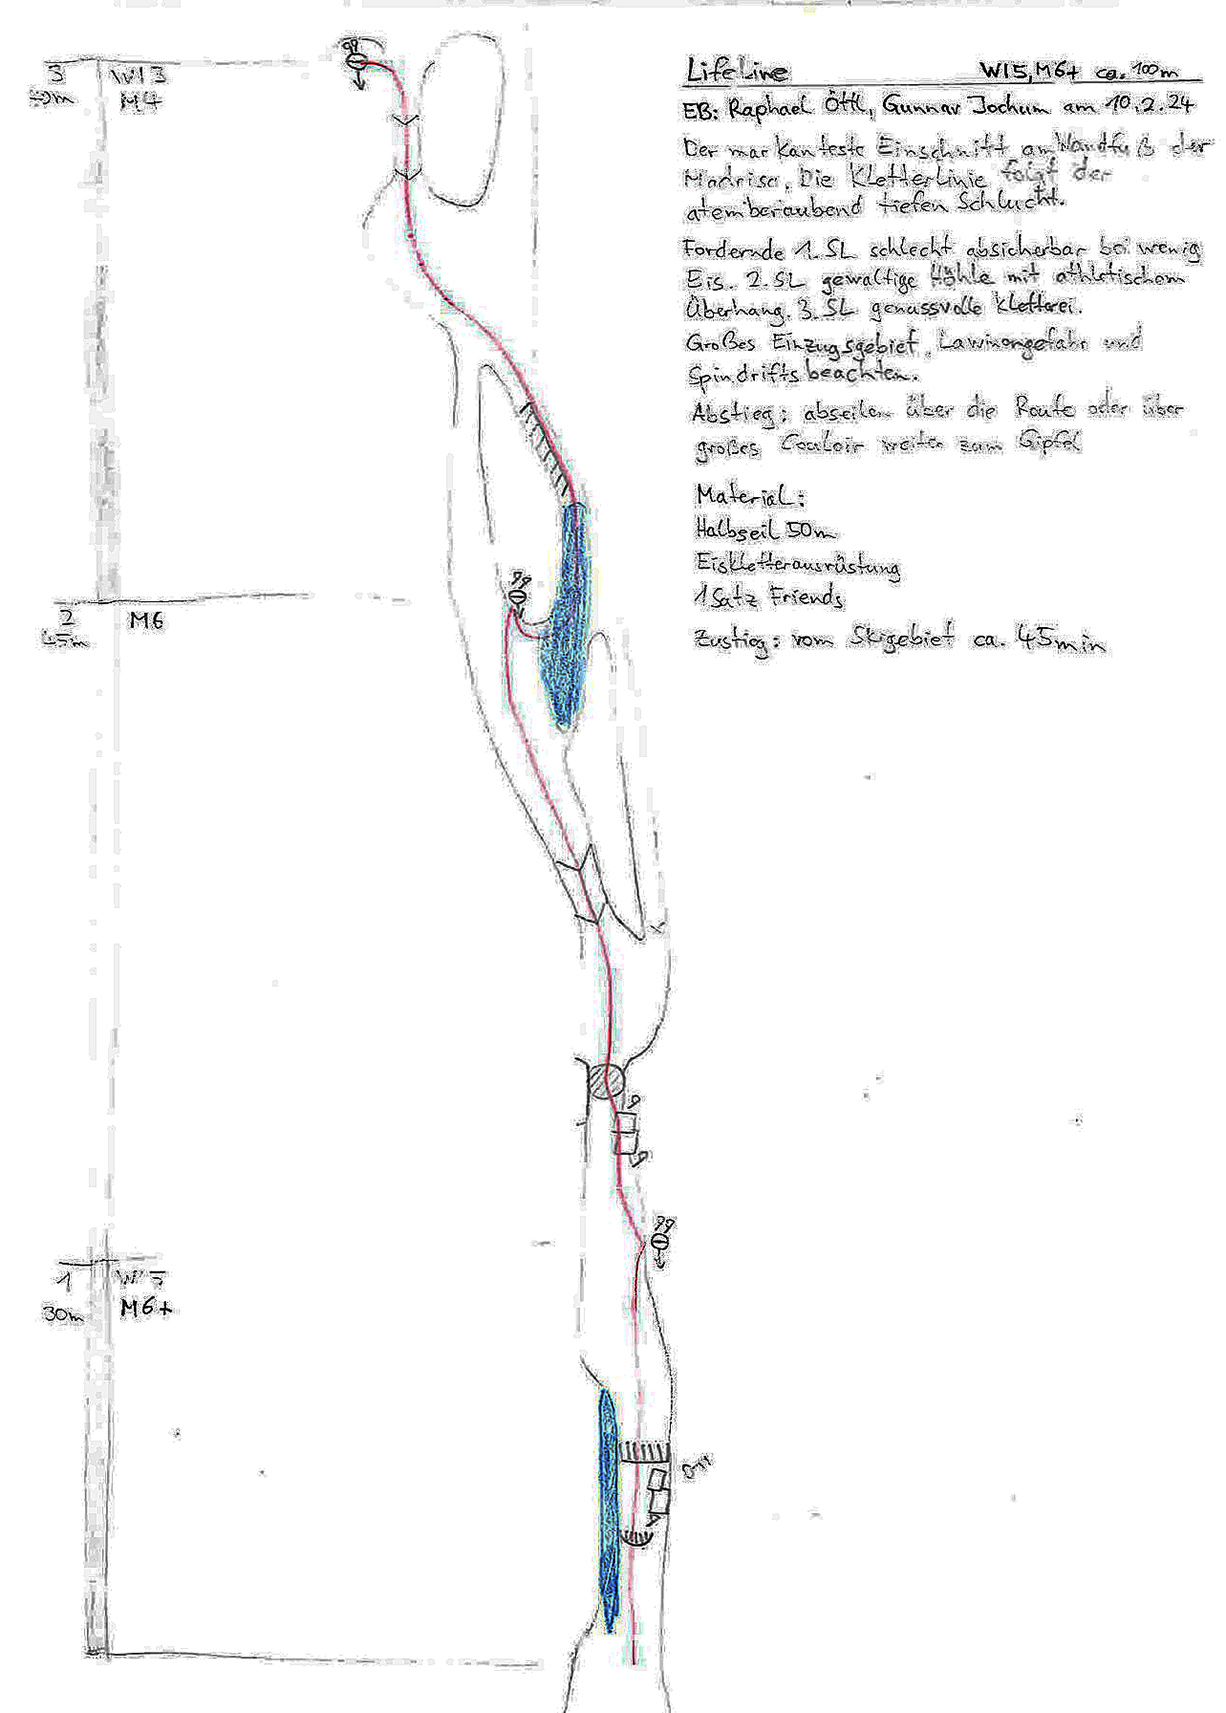 LifeLine WI5, M6+ ca. 100m
EB: Raphael Öttl, Gunnar Jochum am 10.2.24
Der markanteste Einschnitt am Wandfuß der
Madrisa. Die Kletterlinie folgt der
atemberaubend tiefen Schlucht.
Fordernde 1. SL schlecht absicherbar bei wenig
Eis. 2. SL gewaltige Höhle mit athletischem
Überhang. 3. SL genussvolle Kletterei.
Großes Einzugsgebiet, Lawinengefahr und
Spindrifts beachten.
Abstieg: abseilen über die Route oder über
großes Couloir weiter zum Gipfel
Material:
Halbseil 50m
Eiskletterausrüstung
1 Satz Friends
Zustieg: vom Skigebiet ca. 45min
3 WI 3
M4
2 M6
45m
1 WI 5
30m M6+